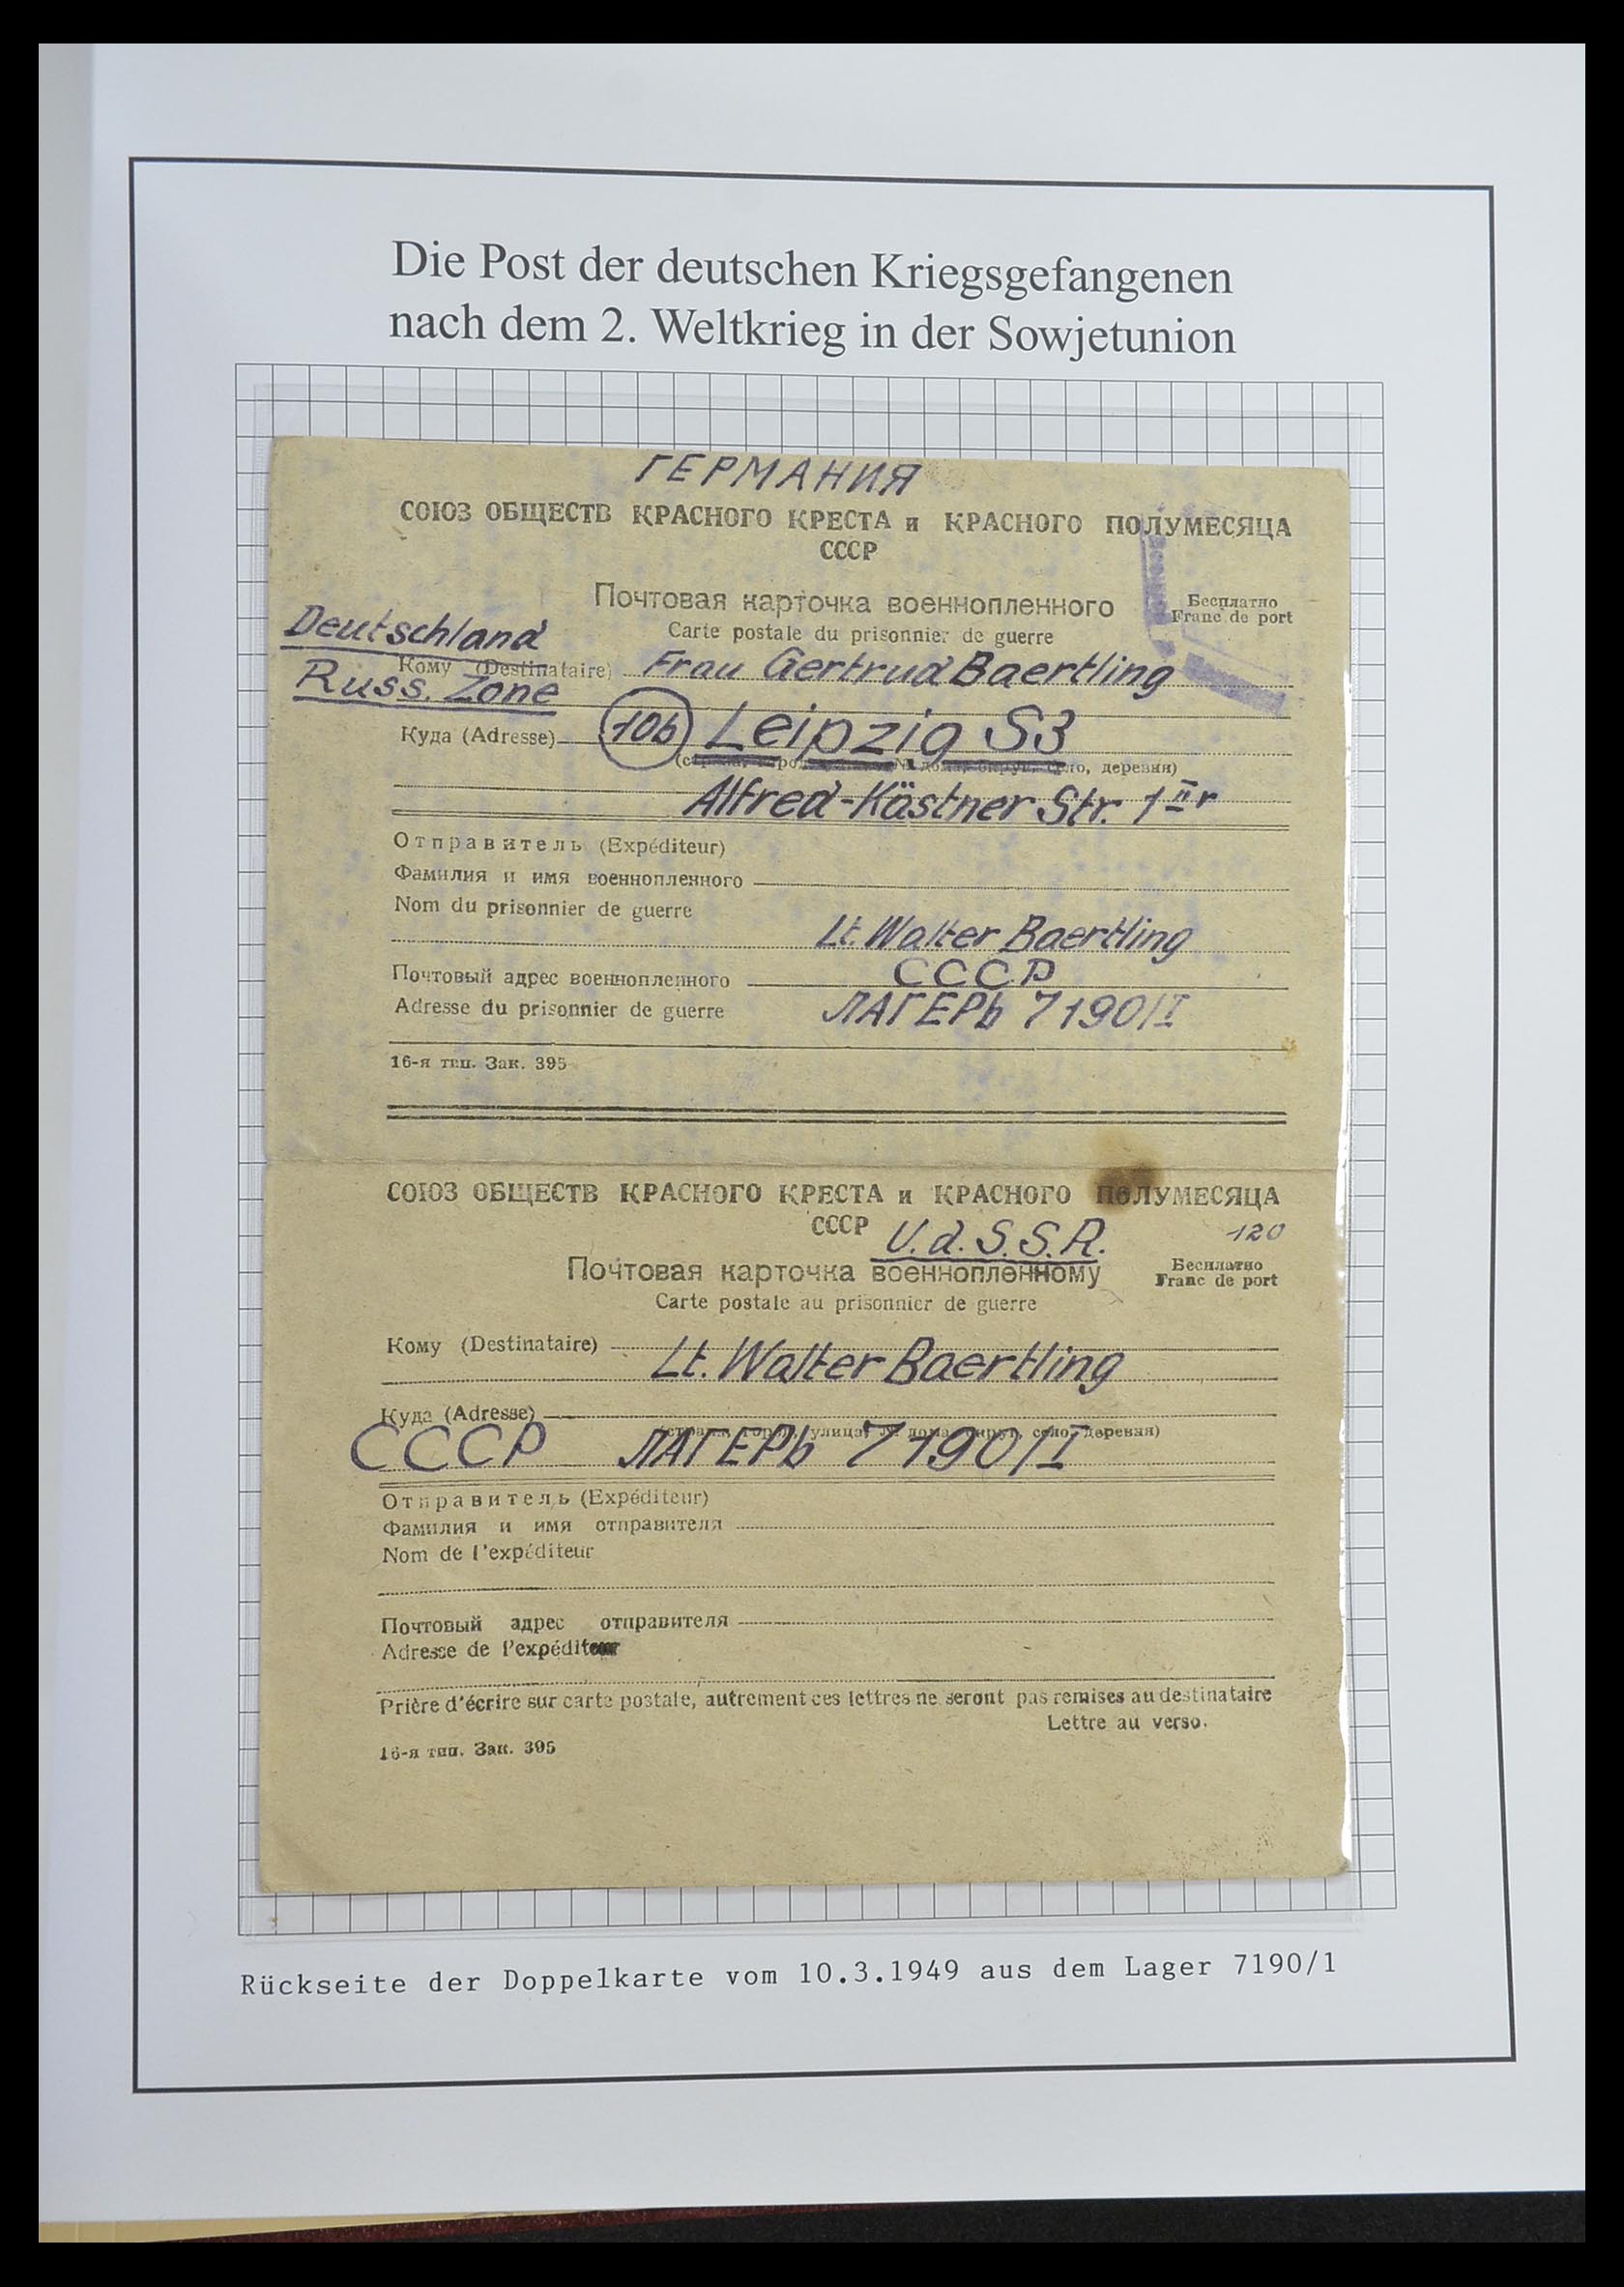 Die Post der deutschen Kriegsgefangenen
nach dem 2. Weltkrieg in der Sowjetunion
ГЕРМАНИЯ
СОЮЗ ОБЩЕСТВ КРАСНОГО КРЕСТА и КРАСНОГО ПОЛУМЕСЯЦА
СССР
Почтовая карточка военнопленного
Бесплатно
Franc de port
Carte postale du prisonnier de guerre
Deutschland
Кому (Destinataire) Frau Gertrud Baertling
Russ. Zone
Куда (Adresse) 10b Leipzig S3
(страна, город, улица, № дома, округ, село, деревня)
Alfred-Kästner Str. 1 II r
Отправитель (Expéditeur)
Фамилия и имя военнопленного
Nom du prisonnier de guerre
Lt. Walter Baertling
Почтовый адрес военнопленного СССР
Adresse du prisonnier de guerre ЛАГЕРЬ 7190/I
16-я тип. Зак. 395
СОЮЗ ОБЩЕСТВ КРАСНОГО КРЕСТА и КРАСНОГО ПОЛУМЕСЯЦА
СССР U.d.S.S.R. 120
Почтовая карточка военнопленному
Бесплатно
Franc de port
Carte postale au prisonnier de guerre
Кому (Destinataire)
Lt. Walter Baertling
Куда (Adresse)
(страна, город, улица, № дома, округ, село, деревня)
СССР ЛАГЕРЬ 7190/I
Отправитель (Expéditeur)
Фамилия и имя отправителя
Nom de l'expéditeur
Почтовый адрес отправителя
Adresse de l'expéditeur
Prière d'écrire sur carte postale, autrement ces lettres ne seront pas remises au destinataire
Lettre au verso.
16-я тип. Зак. 395
Rückseite der Doppelkarte vom 10.3.1949 aus dem Lager 7190/1